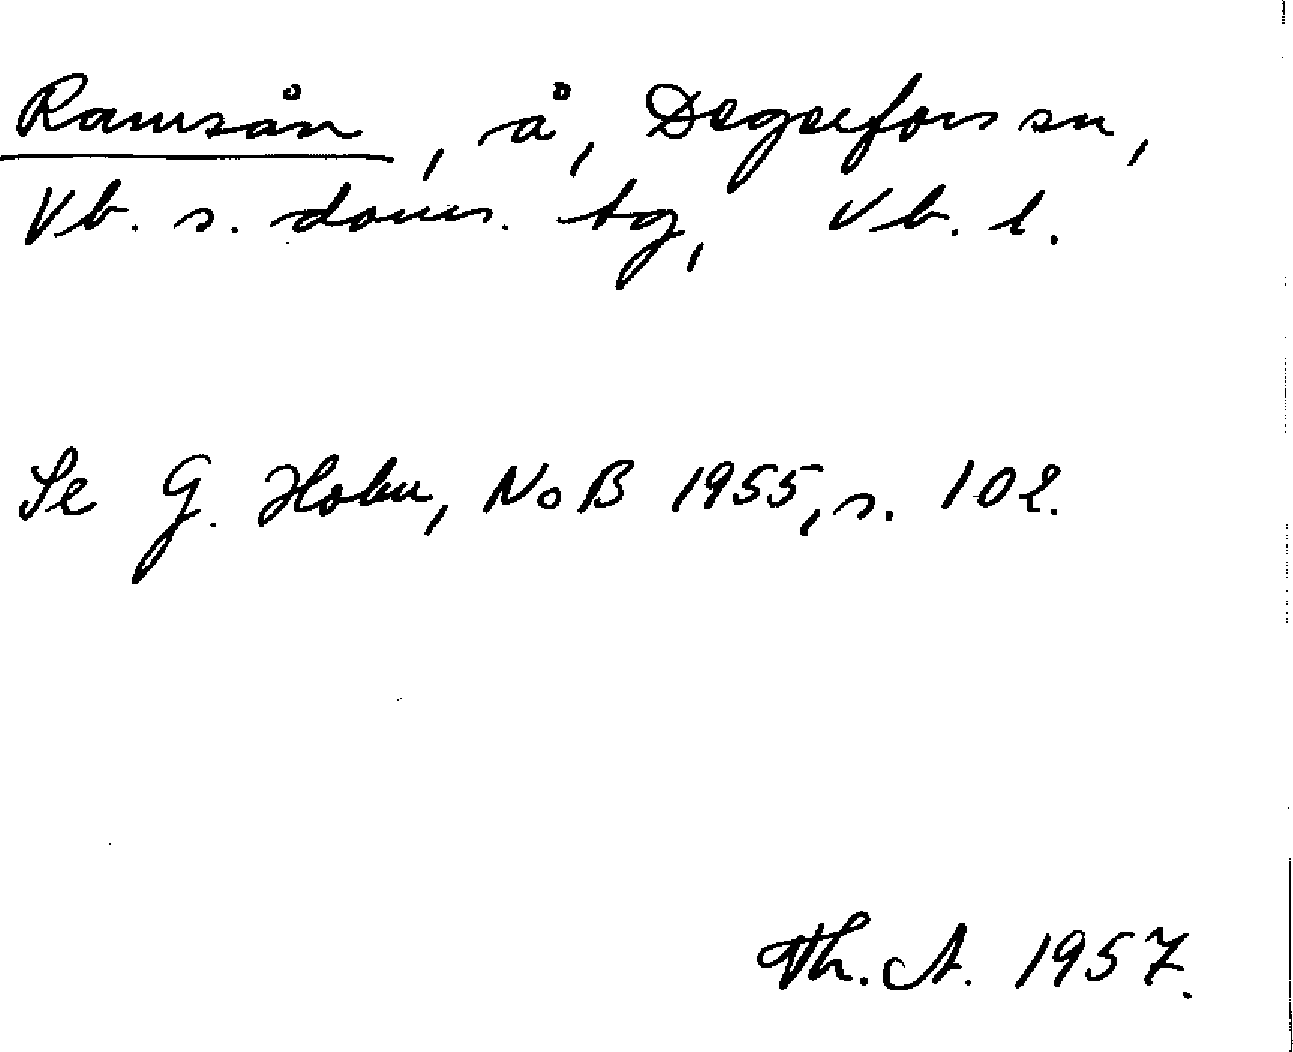 Ramsån, å, Degerfors sn,
Vb. s. doms. tg, Vb. l.
Se G. Holm, NoB 1955, s. 102.
Th. A. 1957.